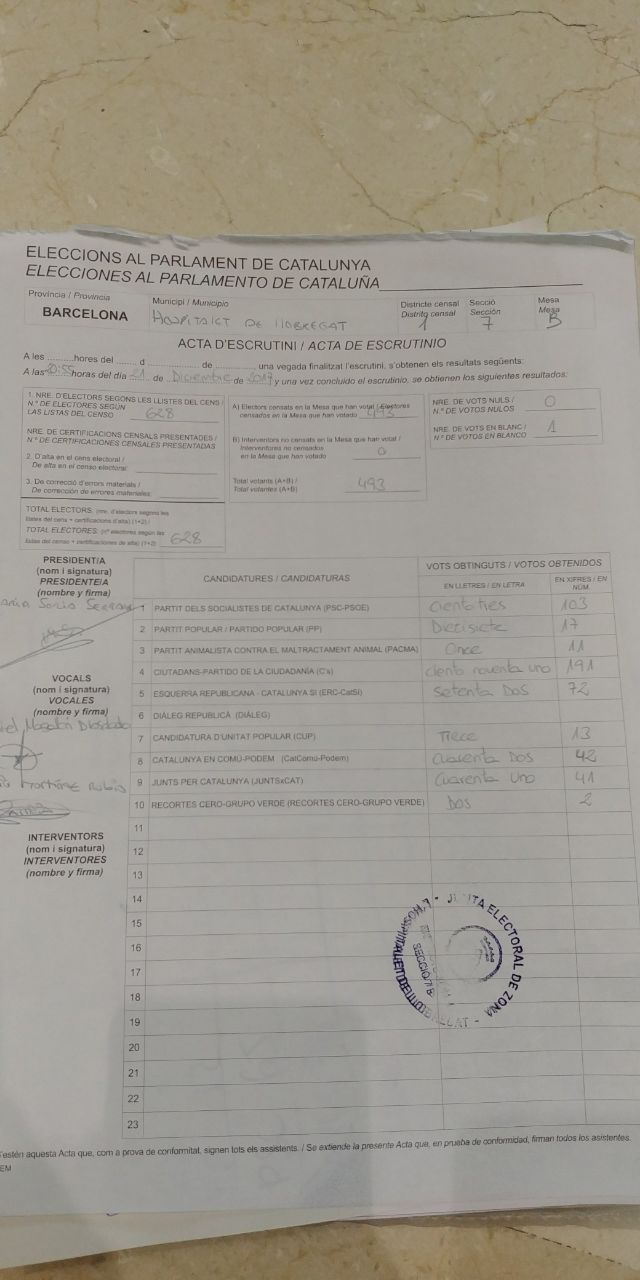 ELECCIONS AL PARLAMENT DE CATALUNYA
ELECCIONES AL PARLAMENTO DE CATALUÑA
Província / Provincia
BARCELONA
Municipi / Municipio
HOSPITALET DE LLOBREGAT
Districte censal
Distrito censal
1
Secció
Sección
7
Mesa
Mesa
B
ACTA D'ESCRUTINI / ACTA DE ESCRUTINIO
A les ..........hores del ....... d .................. de ............., una vegada finalitzat l'escrutini, s'obtenen els resultats següents:
A las 20:55 horas del día 21 de Diciembre de 2017 y una vez concluido el escrutinio, se obtienen los siguientes resultados:
1. NRE. D'ELECTORS SEGONS LES LLISTES DEL CENS /
N.º DE ELECTORES SEGÚN
LAS LISTAS DEL CENSO 628
NRE. DE CERTIFICACIONS CENSALS PRESENTADES /
N.º DE CERTIFICACIONES CENSALES PRESENTADAS
2. D'alta en el cens electoral /
De alta en el censo electoral:
3. De correcció d'errors materials /
De corrección de errores materiales:
TOTAL ELECTORS: (nre. d'electors segons les
llistes del cens + certificacions d'alta) (1+2) /
TOTAL ELECTORES: (nº electores según las
listas del censo + certificaciones de alta) (1+2) 628
A) Electors censats en la Mesa que han votat / Electores
censados en la Mesa que han votado 493
B) Interventors no censats en la Mesa que han votat /
Interventores no censados
en la Mesa que han votado 0
Total votants (A+B) /
Total votantes (A+B) 493
NRE. DE VOTS NULS /
N.º DE VOTOS NULOS 0
NRE. DE VOTS EN BLANC /
N.º DE VOTOS EN BLANCO 1
PRESIDENT/A
(nom i signatura)
PRESIDENTE/A
(nombre y firma)
VOCALS
(nom i signatura)
VOCALES
(nombre y firma)
INTERVENTORS
(nom i signatura)
INTERVENTORES
(nombre y firma)
CANDIDATURES / CANDIDATURAS
VOTS OBTINGUTS / VOTOS OBTENIDOS
EN LLETRES / EN LETRA
EN XIFRES / EN NÚM.
1 PARTIT DELS SOCIALISTES DE CATALUNYA (PSC-PSOE) Ciento tres 103
2 PARTIT POPULAR / PARTIDO POPULAR (PP) Diecisiete 17
3 PARTIT ANIMALISTA CONTRA EL MALTRACTAMENT ANIMAL (PACMA) Once 11
4 CIUTADANS-PARTIDO DE LA CIUDADANÍA (C's) Ciento noventa uno 191
5 ESQUERRA REPUBLICANA - CATALUNYA SÍ (ERC-CatSí) Setenta Dos 72
6 DIÀLEG REPUBLICÀ (DIÀLEG)
7 CANDIDATURA D'UNITAT POPULAR (CUP) Trece 13
8 CATALUNYA EN COMÚ-PODEM (CatComú-Podem) Cuarenta Dos 42
9 JUNTS PER CATALUNYA (JUNTSxCAT) Cuarenta Uno 41
10 RECORTES CERO-GRUPO VERDE (RECORTES CERO-GRUPO VERDE) Dos 2
11
12
13
14
15
16
17
18
19
20
21
22
23
JUNTA ELECTORAL DE ZONA
SECCIO 7 B
S'estén aquesta Acta que, com a prova de conformitat, signen tots els assistents. / Se extiende la presente Acta que, en prueba de conformidad, firman todos los asistentes.